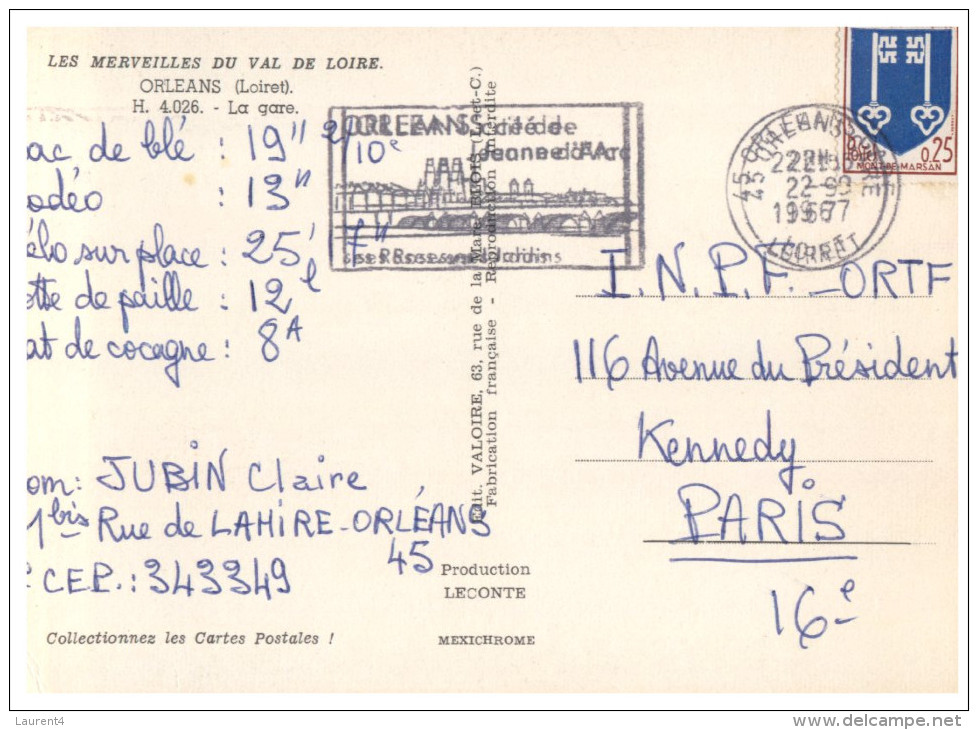 LES MERVEILLES DU VAL DE LOIRE.
ORLEANS (Loiret).
H. 4.026. - La gare.
ac de blé : 19" 2/10e
odéo : 13"
élo sur place : 25' 7"
otte de paille : 12e
at de cocagne : 8A
om: JUBIN Claire
1bis Rue de LAHIRE-ORLÉANS
45
CEP.: 343349
Collectionnez les Cartes Postales !
Production
LECONTE
MEXICHROME
Edit. VALOIRE, 63, rue de la Mare, BLOIS (L.-et-C.)
Fabrication française - Reproduction interdite
ORLEANS cité de
Jeanne d'Arc
ses Roses ses Jardins
45 ORLEANS
22-9
LOIRET
0.25
MONT-DE-MARSAN
I.N.P.F._ORTF
116 Avenue du Président
Kennedy
PARIS
16e
Laurent4
www.delcampe.net